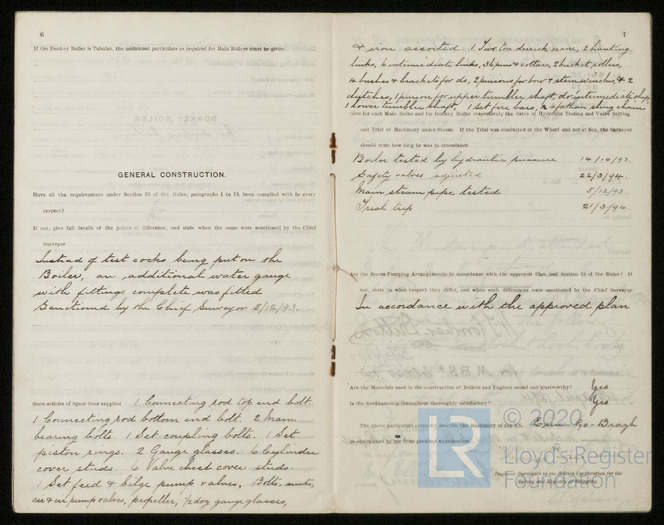 6
If the Donkey Boiler is Tubular, the additional particulars as required for Main Boilers must be given:
GENERAL CONSTRUCTION.
Have all the requirements under Section 33 of the Rules, paragraphs 1 to 13, been complied with in every
respect?
If not, give full details of the points of difference, and state when the same were sanctioned by the Chief
Surveyor
Instead of test cocks being put on the
Boiler, an additional water gauge
with fittings complete was fitted
Sanctioned by the Chief Surveyor 2/12/93.
State articles of Spare Gear supplied 1 Connecting rod top end bolt.
1 Connecting rod bottom end bolt. 2 Main
bearing bolts. 1 Set coupling bolts. 1 Set
piston rings. 2 Gauge glasses. 6 Cylinder
cover studs. 6 Valve chest cover studs.
1 Set feed & bilge pump valves, Bolts, nuts,
air & cir pump valves, propeller, ½ doz gauge glasses,
7
& iron assorted. 1 Two ton derrick crane, 2 hunting
links, 6 intermediate links, 36 pins & cotters, 2 bucket rollers,
4 bushes & brackets for do, 2 pinions for bow & stern winches, & 2
clutches, 1 pinion for upper tumbler shaft, do intermediate shaft,
1 lower tumbler shaft, 1 Set fire bars, & 4 fathom sling chain
Give for each Main Boiler and for Donkey Boiler respectively the dates of Hydraulic Testing and Valve Setting,
and Trial of Machinery under Steam. If the Trial was conducted at the Wharf and not at Sea, the Surveyor
should state how long he was in attendance
Boiler tested by hydraulic pressure 14/10/93.
Safety valves adjusted 22/3/94.
Main steam pipe tested 5/12/93.
Trial trip 21/3/94.
Are the Steam Pumping Arrangements in accordance with the approved Plan, and Section 34 of the Rules? If
not, state in what respect they differ, and when such differences were sanctioned by the Chief Surveyor
In accordance with the approved plan
Are the Materials used in the construction of Boilers and Engines sound and trustworthy? Yes
Is the workmanship throughout thoroughly satisfactory? Yes
The above particulars correctly describe the Machinery of the s.s. Erin Go Bragh
as ascertained by me from personal examination.
Engineer Surveyor to the British Corporation for the
Survey and Registry of Shipping.
LR
© 2020
Lloyd's Register
Foundation